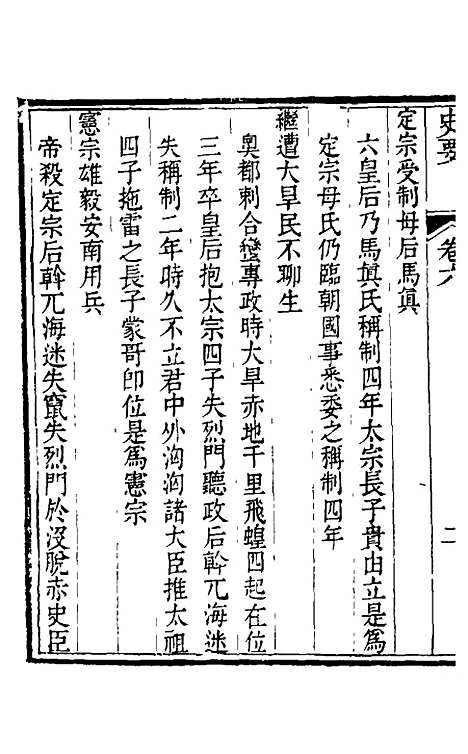 史要 卷六 二
定宗受制母后馬真
六皇后乃馬真氏稱制四年太宗長子貴由立是爲
定宗母氏仍臨朝國事悉委之稱制四年
繼遭大旱民不聊生
奥都剌合蠻專政時大旱赤地千里飛蝗四起在位
三年卒皇后抱太宗四子失烈門聽政后斡兀海迷
失稱制二年時久不立君中外洶洶諸大臣推太祖
四子拖雷之長子蒙哥卽位是爲憲宗
憲宗雄毅安南用兵
帝殺定宗后斡兀海迷失竄失烈門於没脱赤史臣